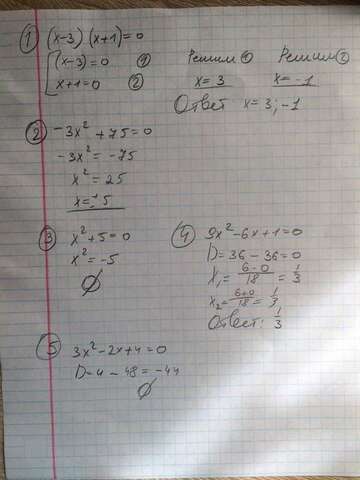 1) (x-3)(x+1)=0
(x-3)=0 ①
x+1=0 ②
Решим ①
x=3
Решим ②
x=-1
Ответ x=3;-1
② -3x²+75=0
-3x²=-75
x²=25
x=±5
③ x²+5=0
x²=-5
∅
④ 9x²-6x+1=0
D=36-36=0
x₁=(6-0)/18=1/3
x₂=(6+0)/18=1/3
Ответ: 1/3
⑤ 3x²-2x+4=0
D=4-48=-44
∅